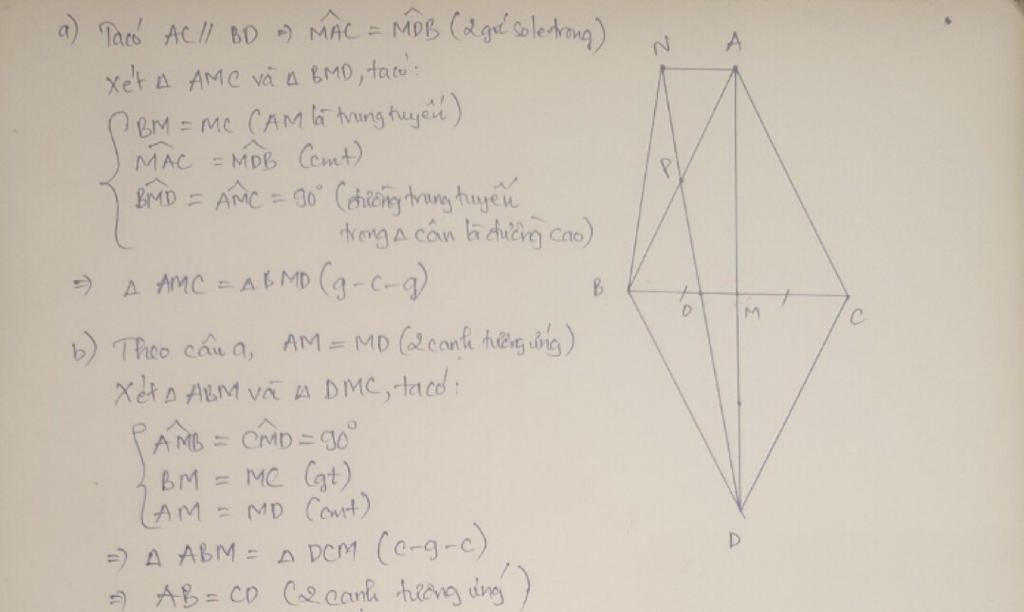 a) Ta có AC // BD => M̂AC = M̂DB (2 góc so le trong)
Xét Δ AMC và Δ BMD, ta có:
BM = MC (AM là trung tuyến)
M̂AC = M̂DB (cmt)
B̂MD = ÂMC = 90° (đường trung tuyến
trong Δ cân là đường cao)
=> Δ AMC = Δ BMD (g-c-g)
b) Theo câu a, AM = MD (2 cạnh tương ứng)
Xét Δ ABM và Δ DMC, ta có:
ÂMB = ĈMD = 90°
BM = MC (gt)
AM = MD (cmt)
=> Δ ABM = Δ DCM (c-g-c)
=> AB = CD (2 cạnh tương ứng)
N A
P
B O M C
D